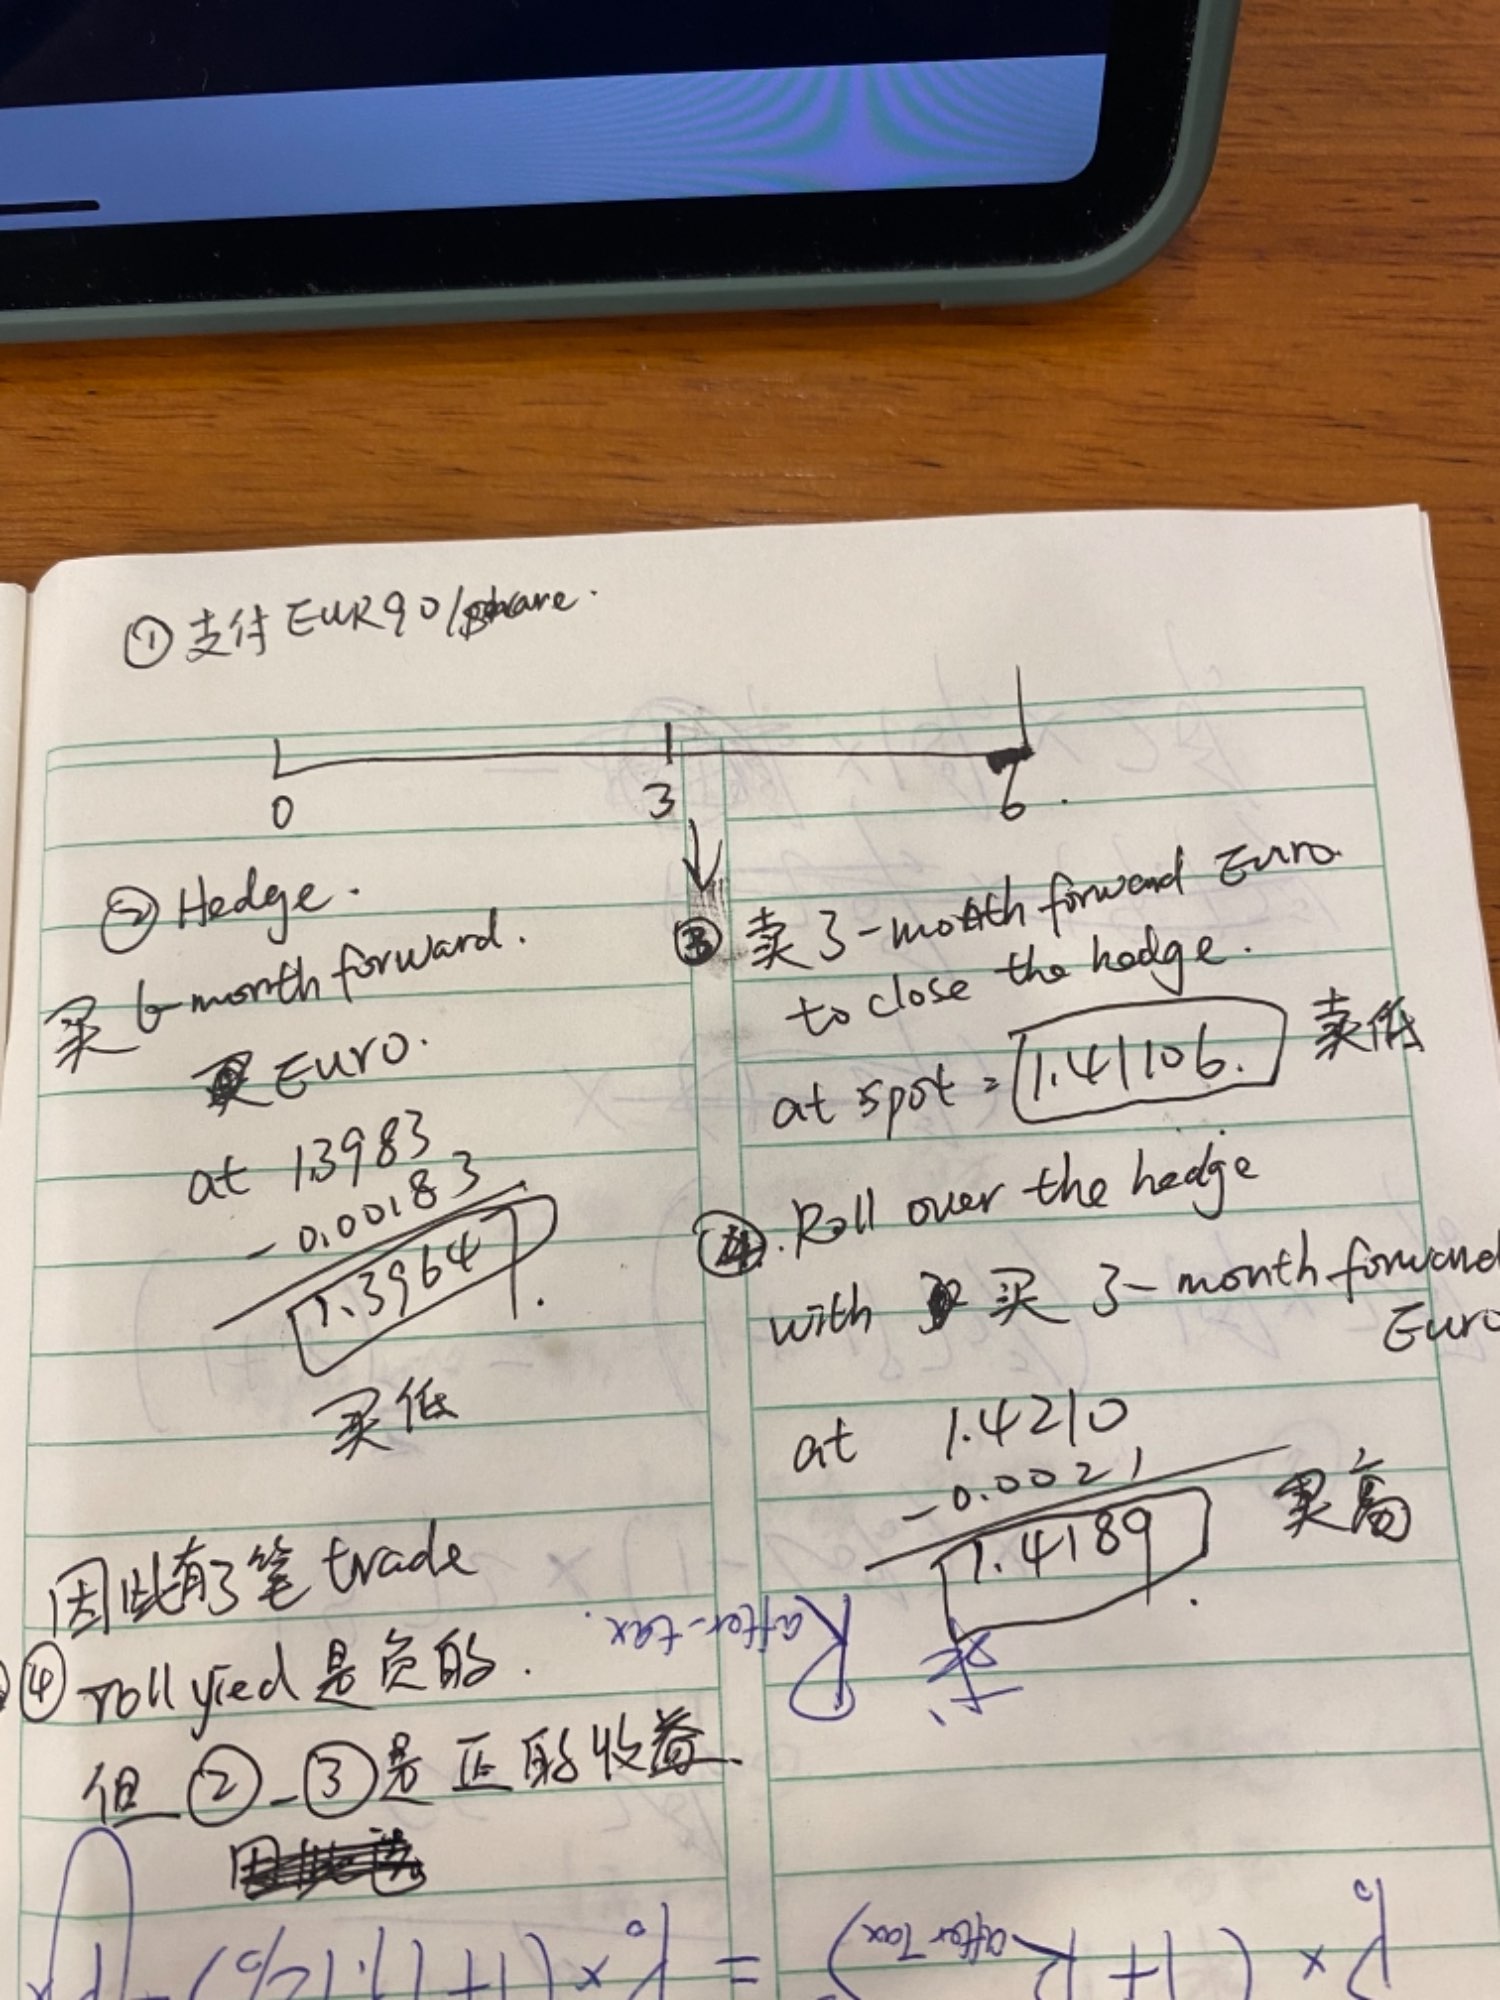 ① 支付 EUR90/share.
0
3
6
② Hedge.
买 6-month forward.
Euro.
at 1.3983
-0.00183
1.3964
买低
③ 卖 3-month forward Euro
to close the hedge.
at spot = 1.41106. 卖低
④. Roll over the hedge
with 买 3-month forward
Euro
at 1.4210
-0.0021
1.4189
买高
因此有了笔 trade
④ roll yied 是负的.
但 ② - ③ 是正的收益.
求 R after-tax.
P₀ × (1+R after Tax) = P₀ × (1+11.12%)